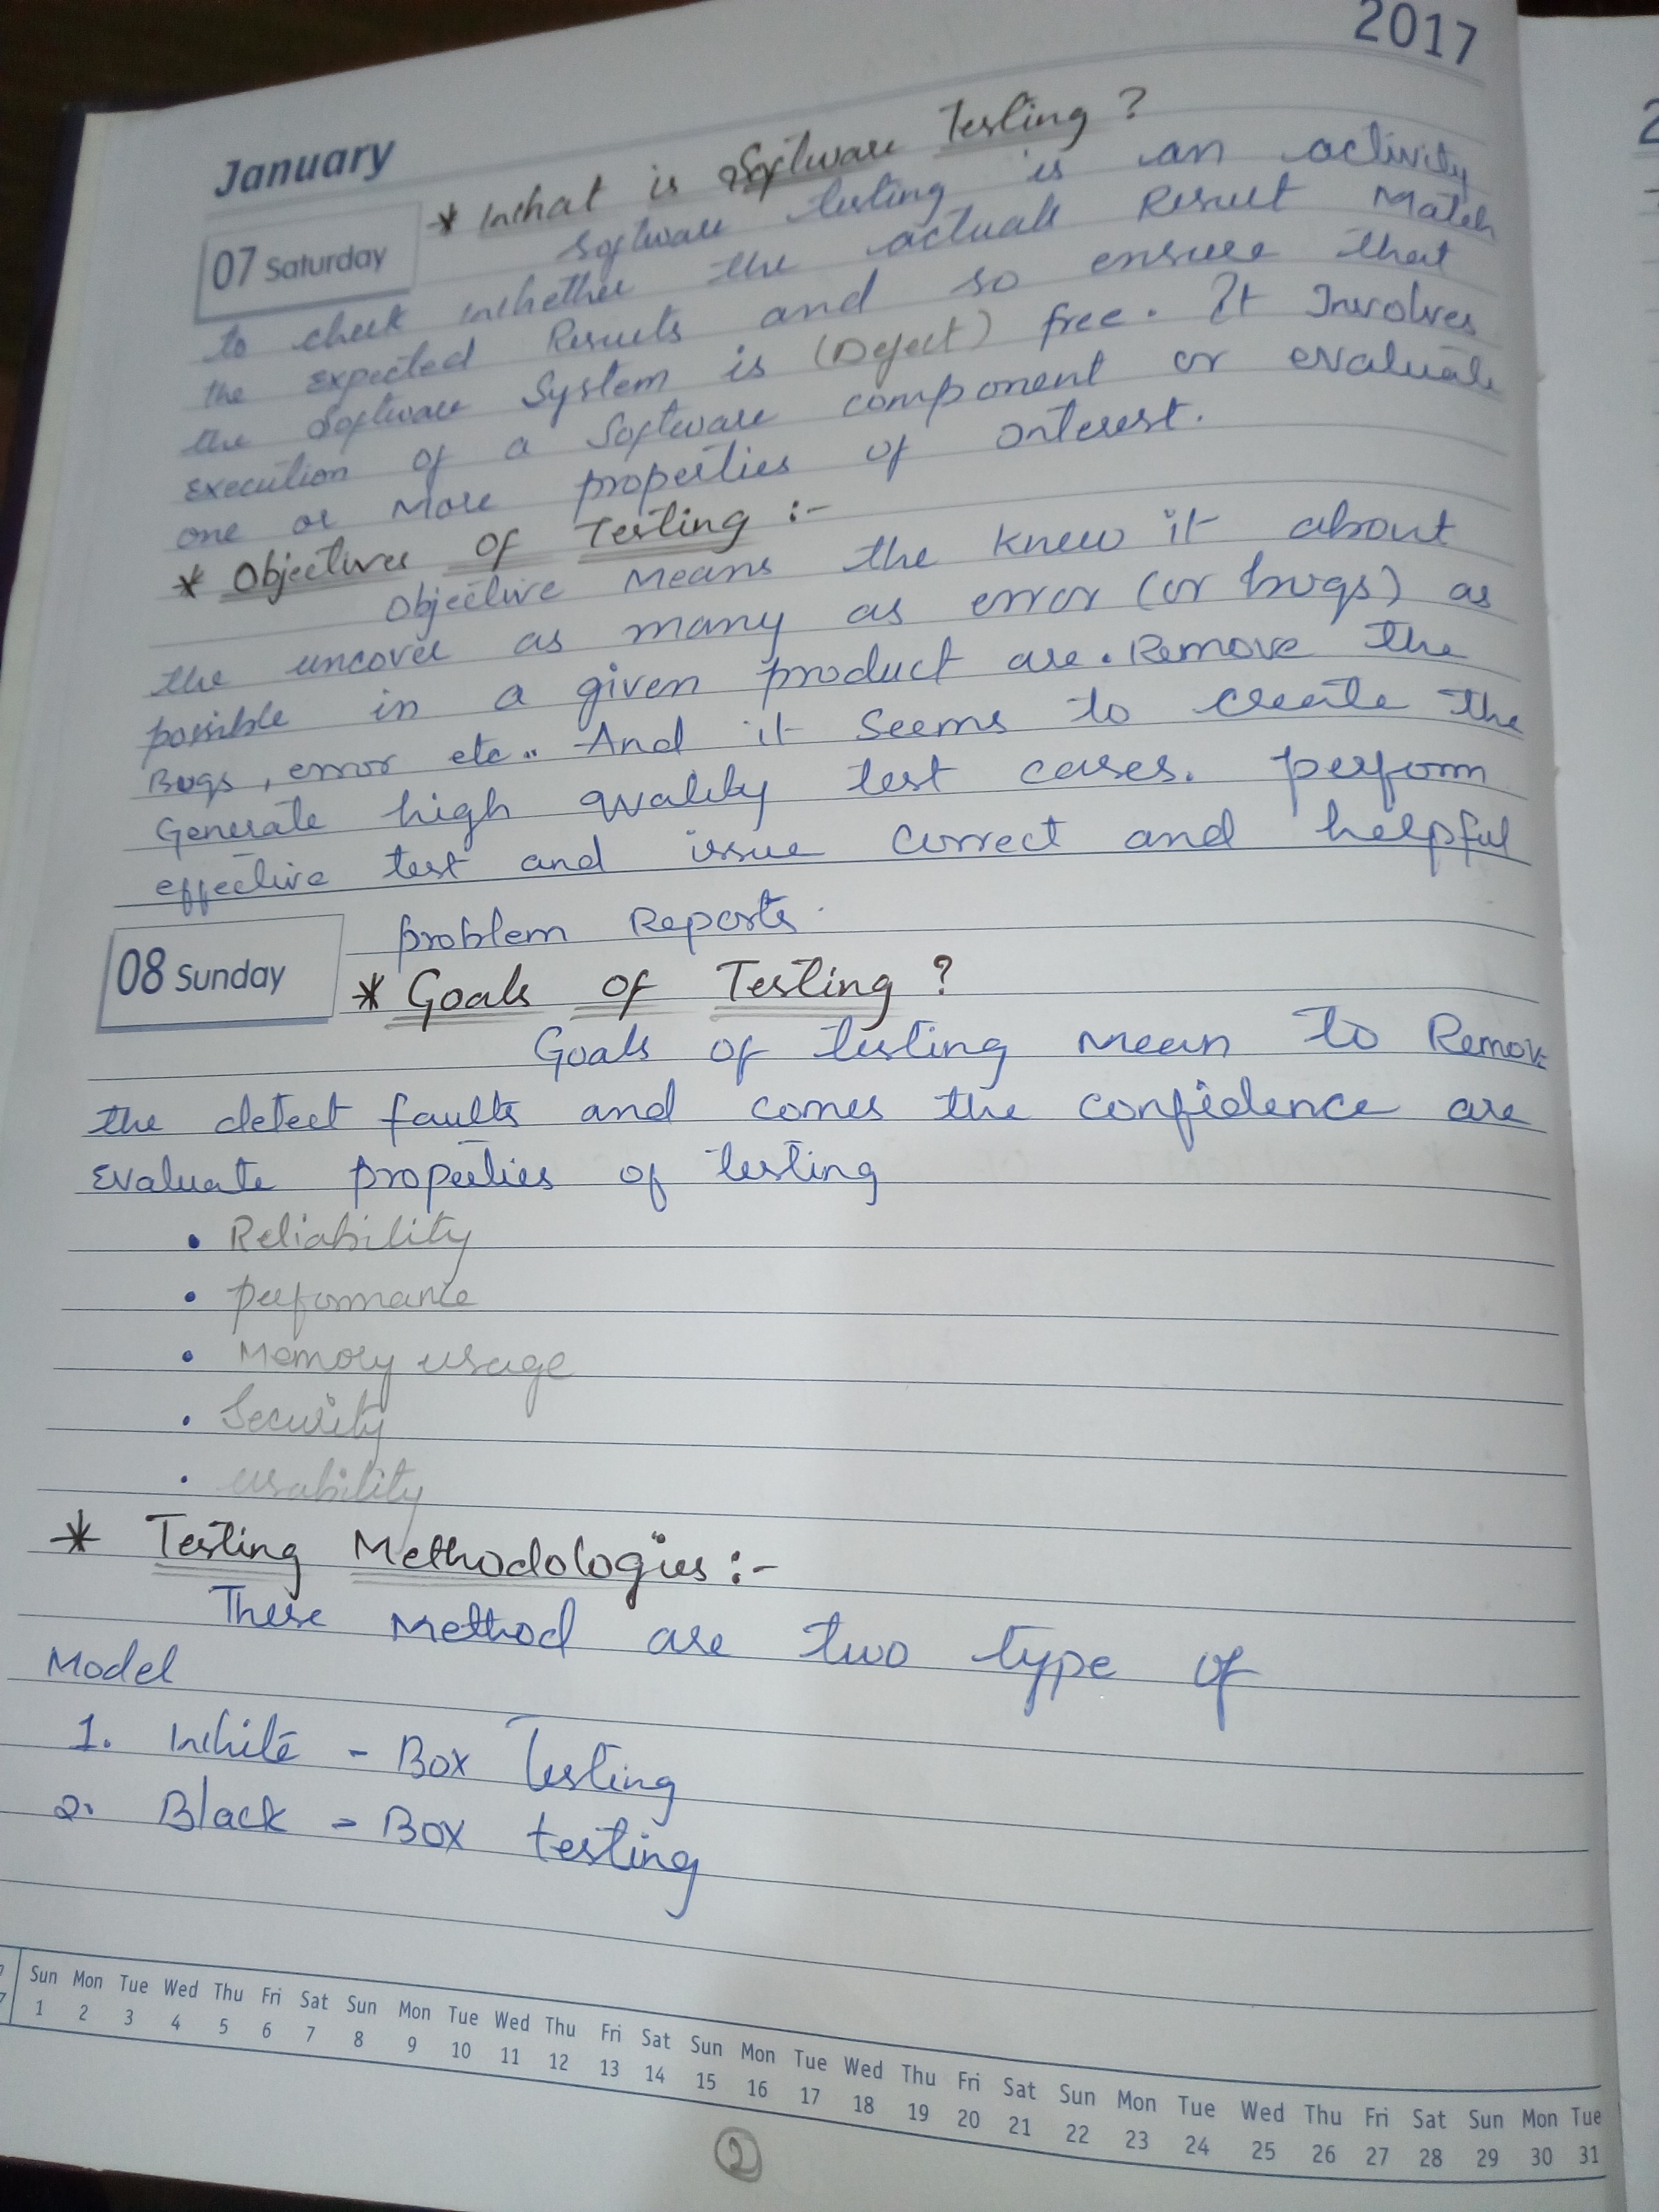 2017
January
* What is Software Testing ?
07 Saturday
Software testing is an activity
to check whether the actuall Result Match
the Expected Results and so ensure that
the Software System is (Defect) free. It Involves
Execution of a Software component or evaluate
one or More properties of interest.
* Objectives of Testing :-
Objective Means the knew it about
the uncover as many as error (or bugs) as
possible in a given product are. Remove the
Bugs, error etc.. And it seems to create the
Generate high quality test cases. perform
effective test and issue correct and helpful
problem Reports.
08 Sunday
* Goals of Testing ?
Goals of testing Mean to Remove
the detect faults and comes the confidence are
Evaluate properties of testing
• Reliability
• performance
• Memory usage
• Security
• usability
* Testing Methodologies :-
These Method are two type of
Model
1. White - Box Testing
2. Black - Box testing
Sun Mon Tue Wed Thu Fri Sat Sun Mon Tue Wed Thu Fri Sat Sun Mon Tue Wed Thu Fri Sat Sun Mon Tue Wed Thu Fri Sat Sun Mon Tue
1 2 3 4 5 6 7 8 9 10 11 12 13 14 15 16 17 18 19 20 21 22 23 24 25 26 27 28 29 30 31
2